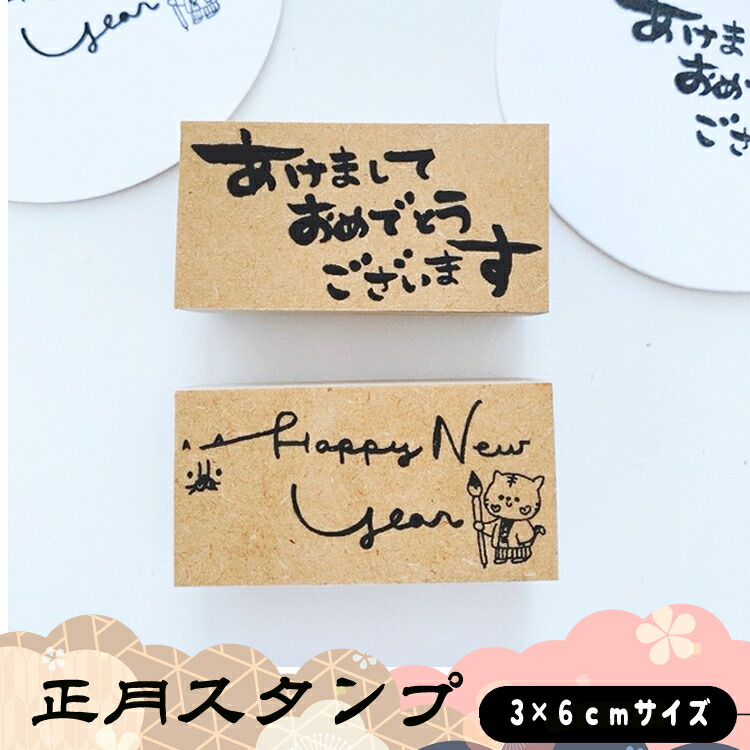 year
あけま
おめ
ござ
あけまして
おめでとう
ございます
Happy New
year
正月スタンプ
3×6cmサイズ